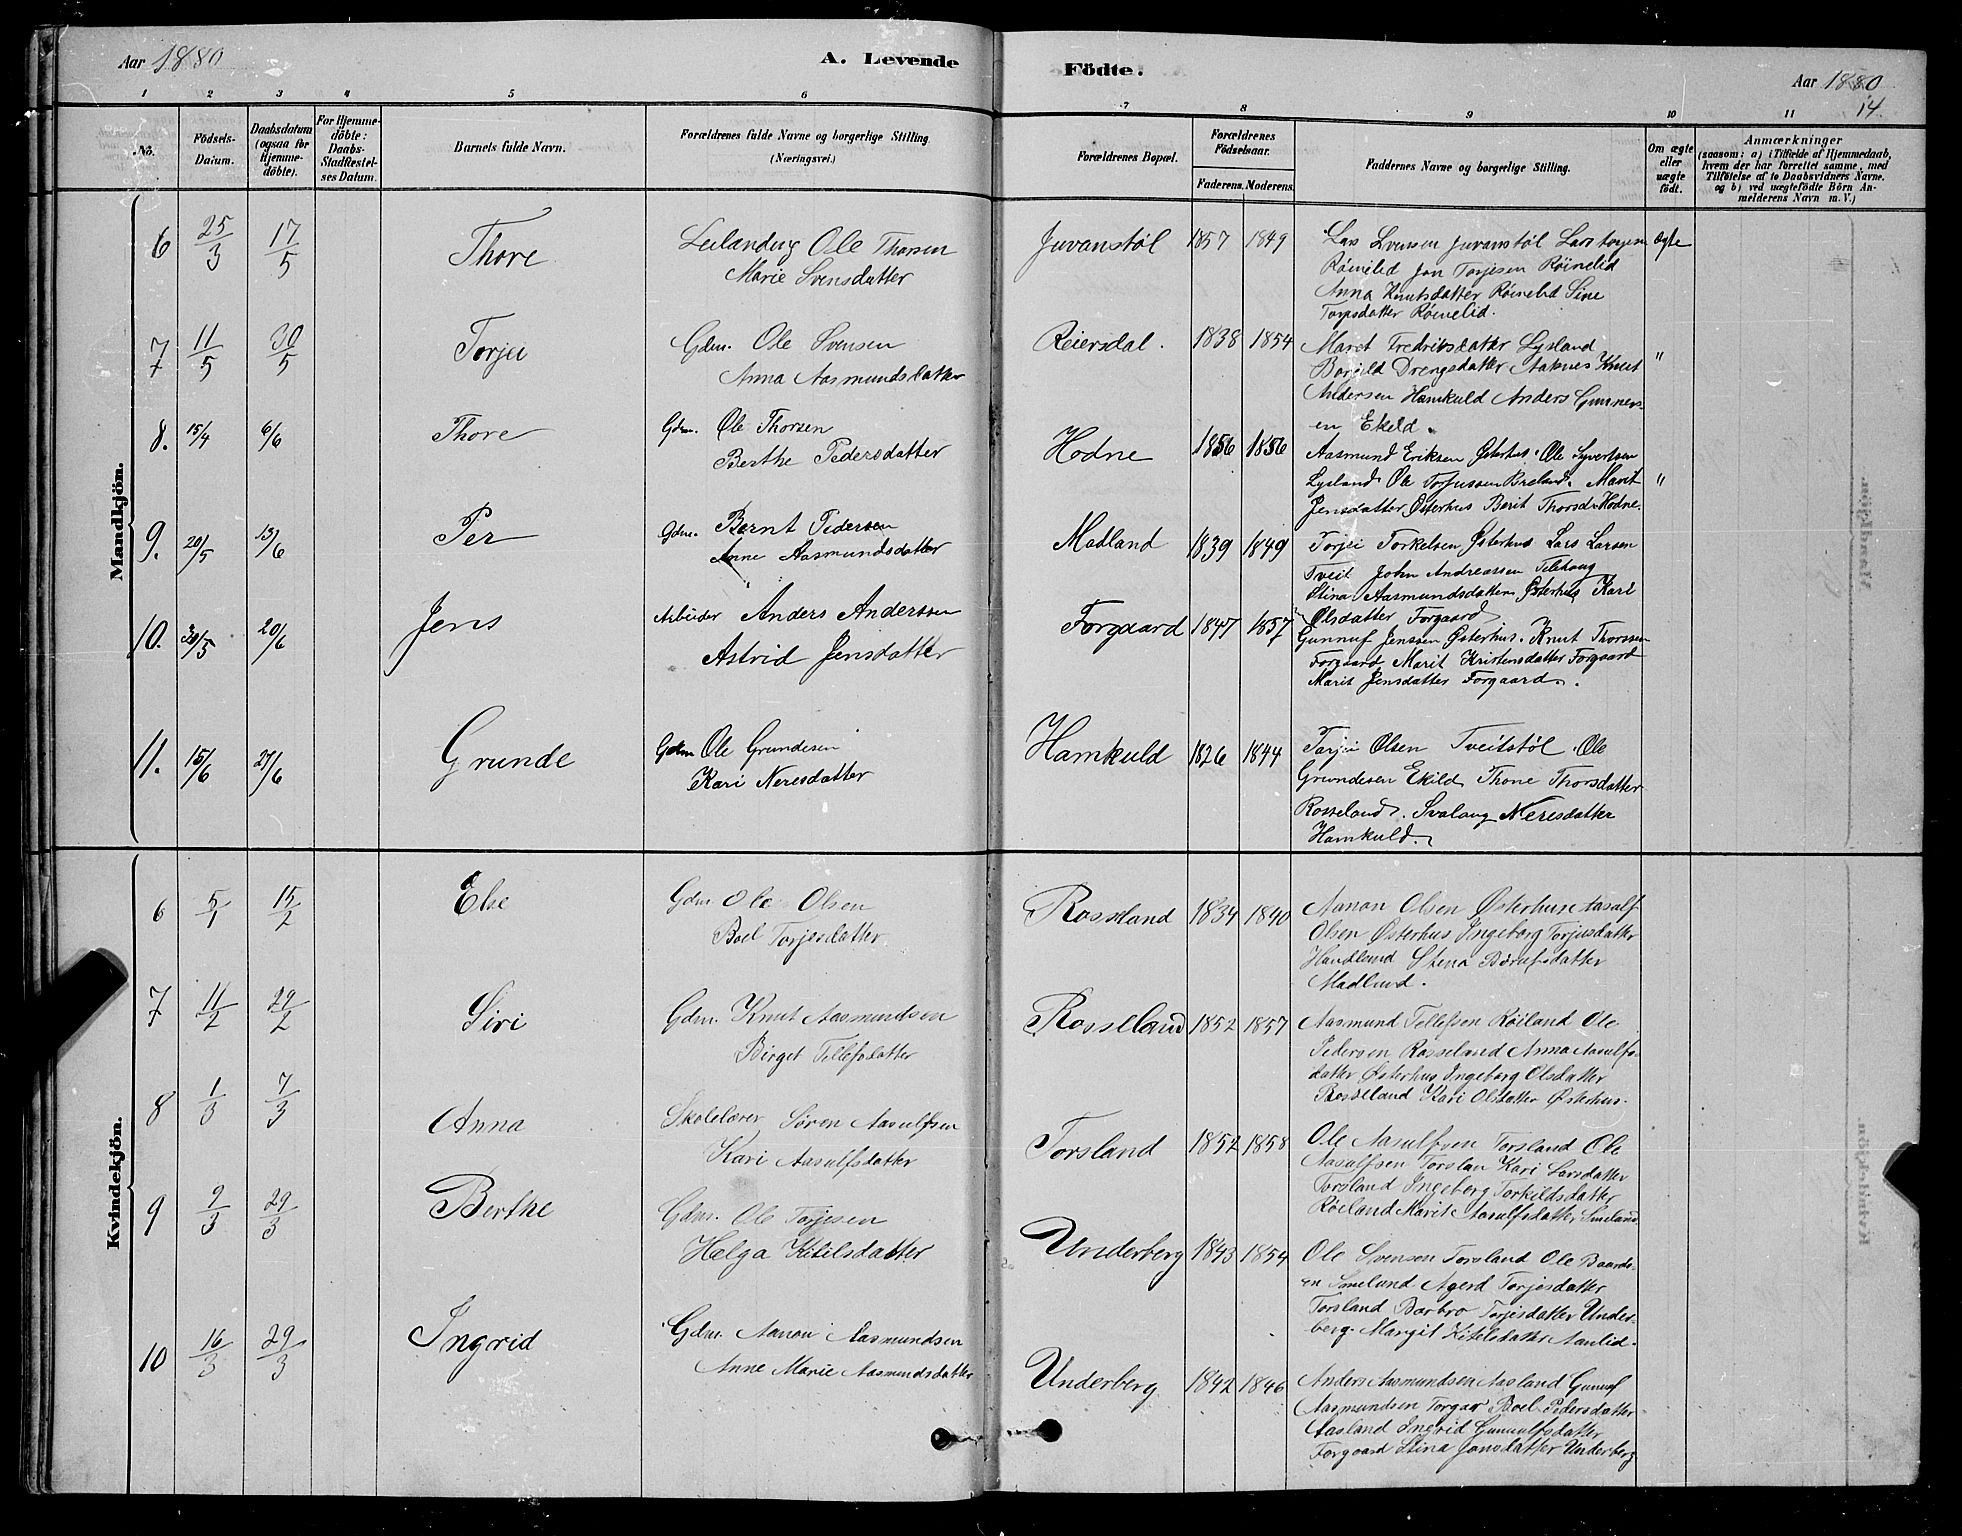 Aar 1880
A. Levende
Födte.
Aar 1880
14.
1 2 3 4 5 6 7 8 9 10 11
No.
Födsels-
Datum.
Daabsdatum
(ogsaa for
Hjemme-
döbte).
For Hjemme-
döbte:
Daabs-
Stadfæstel-
ses Datum.
Barnets fulde Navn.
Forældrenes fulde Navne og borgerlige Stilling
(Næringsvei.)
Forældrenes Bopæl.
Forældrenes
Födselsaar.
Faderens. Moderens.
Faddernes Navne og borgerlige Stilling.
Om ægte
eller
uægte
födt.
Anmærkninger
(saasom: a) i Tilfælde af Hjemmedaab,
hvem der har forrettet samme, med
Tilföielse af to Daabsvidners Navne.
og b) ved uægtefödte Börn An-
melderens Navn m. V.)
Mandkjön.
6 25/3 17/5 Thore
Leilænding Ole Thorsen
Marie Svensdatter
Juvanstøl 1857 1849
Lars Svensen Juvanstøl Lars Torjesen
Røinelid Jon Torjesen Røinelid
Anna Knutsdatter Røinelid Sine
Torjesdatter Røinelid.
Ægte
7 11/5 30/5 Torjei
Gdm. Ole Svensen
Anna Aasmundsdatter
Reiersdal. 1838 1854
Maret Fredriksdatter Lysland
Borjild Drengsdatter Aaknes Knut
Andersen Hamkuld Anders Gunners-
en Ekeld.
"
8. 15/4 6/6 Thore
Gdm. Ole Thorsen
Berthe Pedersdatter
Hodne 1856 1856
Aasmund Eriksen Østerhus. Ole Syvertsen
Lysland Ole Torjussen Breland. Marit
Jensdatter Østerhus Berit Thorsd. Hodne.
"
9. 20/5 13/6 Per
Gdm. Bernt Pedersen
Anne Aasmundsdatter
Madland 1839 1849
Torjei Torkelsen Østerhus Lars Larsen
Tveit John Andreassen Telehaug
Stina Aasmundsdatter Østerhus Kari
Olsdatter Forgaard
10. 30/5 20/6 Jens
Arbeider Anders Anderssen
Astrid Jensdatter
Forgaard 1847 1857
Gunnuf Jenssen Østerhus. Knut Thorssen
Forgaard Marit Kristensdatter Forgaard
Marit Jensdatter Forgaard.
11. 15/6 27/6 Grunde
Gdm Ole Grundesen
Kari Neresdatter
Hamkuld 1826 1844
Torjei Olsen Tveitstøl. Ole
Grundesen Ekild Thone Thorsdatter
Rosseland. Svalaug Neresdatter
Hamkuld.
Kvindekjön.
6 5/1 15/2 Else
Gdm. Ole Olsen
Boel Torjesdatter
Rosseland 1834 1840
Aanon Olsen Østerhus Aasulf
Olsen Østerhus Ingeborg Torjusdatter
Stena
Madlund.
7 11/2 29/2 Siri
Gdm. Knut Aasmundsen
Birget Tellefsdatter
Rosseland 1852 1857
Aasmund Tellefsen Røiland Ole
Pedersen Rosseland Anna Aasulfs-
datter Østerhus Ingeborg Olsdatter
Rosseland Kari Olsdatter Østerhus.
8 1/3 7/3 Anna
Skolelærer Søren Aasulfsen
Kari Aasulfsdatter
Torsland 1852 1858
Ole Aasulfsen Torsland Ole
Aasulfsen Torslan Kari Larsdatter
Torsland Ingeberg Torkildsdatter
Røeland Marit Aasulfsdatter Smeland
9 9/3 29/3 Berthe
Gdm. Ole Torjesen
Hælga Kitelsdatter
Underberg 1843 1854
Ole Svensen Torsland Ole Baards-
en Smelund Agerd Torjesdatter
Torsland Barbro Torjesdatter Under-
berg. Margit Kitelsdatter Aanlid.
10 16/3 29/3 Ingrid
Gdm. Aanon Aasmundsen
Anne Marie Aasmundsdatter
Underberg 1842 1846
Anders Aasmundsen Aasland Gunuf
Aasmundsen Forgar Boel Pedersdatter
Aasland Ingrid Gunulfsdatter
Forgaard Stina Jonsdatter Underberg